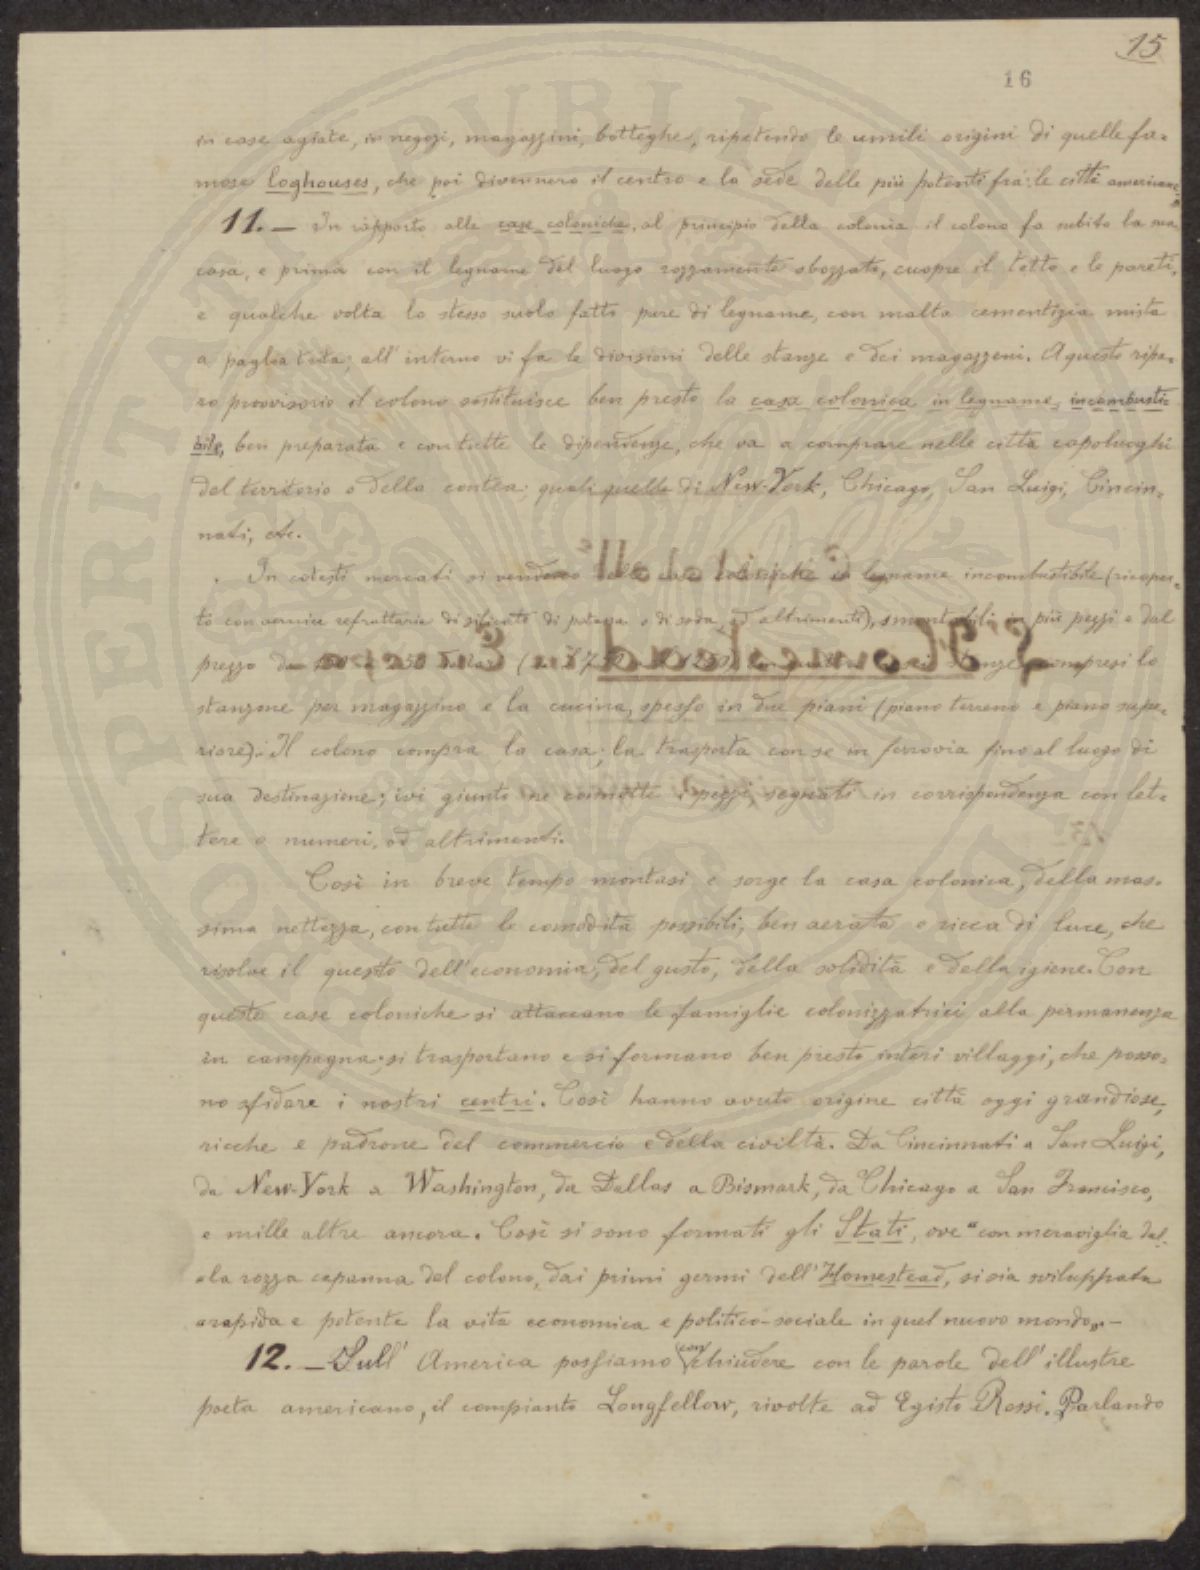 15
16
in case agiate, in negozi, magazzini, botteghe, ripetendo le umili origini di quelle fa-
mose loghouses, che poi divennero il centro e la sede delle più potenti fra le città americane.„
11. — In rapporto alle case coloniche, al principio della colonia il colono fa subito la sua
casa, e prima con il legname del luogo rozzamente sbozzato, cuopre il tetto e le pareti,
e qualche volta lo stesso suolo fatto pure di legname, con malta cementizia mista
a paglia trita; all'interno vi fa le divisioni delle stanze e dei magazzeni. A questo ripa-
ro provvisorio il colono sostituisce ben presto la casa colonica in legname, incombusti-
bile, ben preparata e con tutte le dipendenze, che va a comprare nelle città capoluoghi
del territorio o della contea; quali quelle di New-York, Chicago, San Luigi, Cincin-
nati, etc.
In cotesti mercati si vendono case coloniche in legname incombustibile (ricoper-
to con vernice refrattaria di silicato di potassa o di soda, od altrimenti), smontabili in più pezzi e dal
prezzo da stanze, compresi lo
stanzone per magazzino e la cucina, spesso in due piani (piano terreno e piano supe-
riore). Il colono compra la casa; la trasporta con se in ferrovia fino al luogo di
sua destinazione; ivi giunto ne connette i pezzi, segnati in corrispondenza con let-
tere o numeri, od altrimenti.
Così in breve tempo montasi e sorge la casa colonica, della mas-
sima nettezza, con tutte le comodità possibili, ben aerata e ricca di luce, che
risolve il quesito dell'economia, del gusto, della solidità e della igiene. Con
queste case coloniche si attaccano le famiglie colonizzatrici alla permanenza
in campagna; si trasportano e si formano ben presto interi villaggi, che posso-
no sfidare i nostri centri. Così hanno avuto origine città oggi grandiose,
ricche e padrone del commercio e della civiltà. Da Cincinnati a San Luigi,
da New-York a Washington, da Dallas a Bismark, da Chicago a San Francisco,
e mille altre ancora. Così si sono formati gli Stati, ove "con meraviglia dal-
"la rozza capanna del colono, dai primi germi dell'Homestead, si sia sviluppata
"rapida e potente la vita economica e politico-sociale in quel nuovo mondo„. —
12. — Sull'America possiamo (con) chiudere con le parole dell'illustre
poeta americano, il compianto Longfellow, rivolte ad Egisto Rossi. Parlando